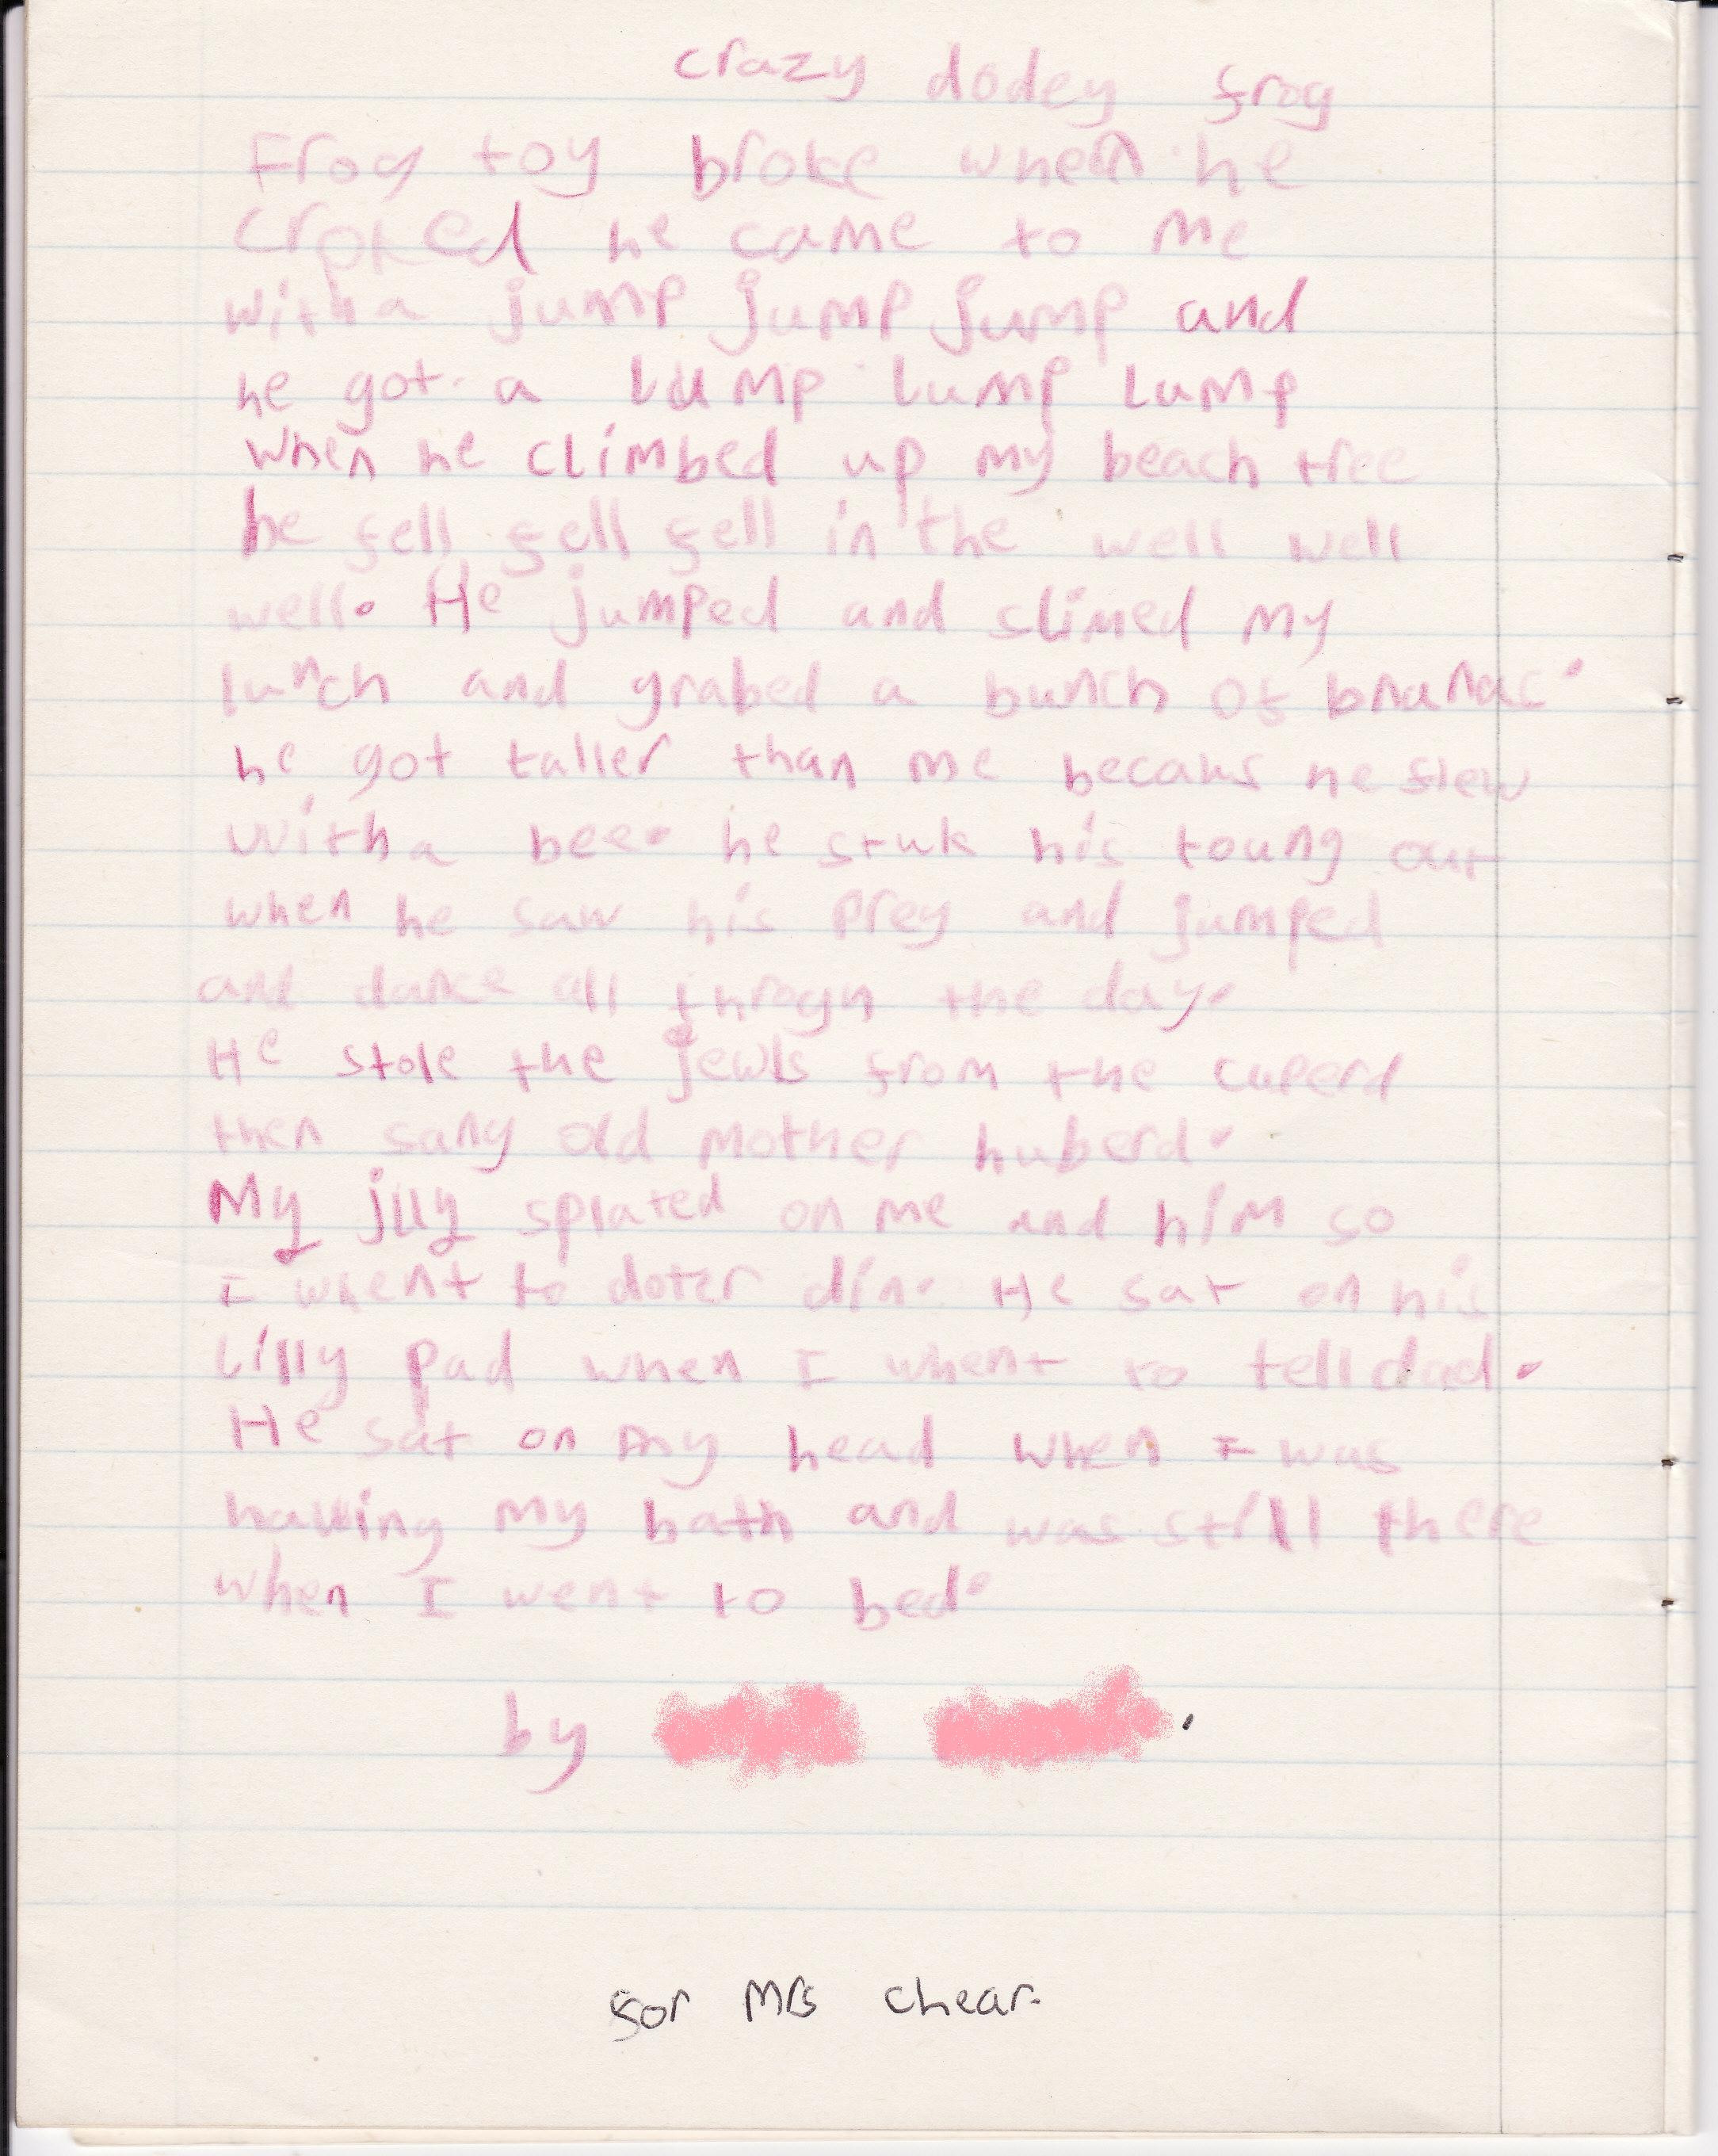 crazy dodey frog
Frog toy broke when he
croked he came to me
with a jump jump jump and
he got a lump lump lump
when he climbed up my beach tree
he fell fell fell in the well well
well. He jumped and slimed my
lunch and grabed a bunch of bnanas.
he got taller than me becaus he flew
with a bee. he stuk his toung out
when he saw his prey and jumped
and dance all throgh the day.
He stole the jewls from the cuperd
then sang old mother huberd.
My jlly splated on me and him so
I whent to doter din. He sat on his
Lilly pad when I whent to tell dad.
He sat on my head when I was
having my bath and was still there
when I went to bed.
by
for Mrs chear.